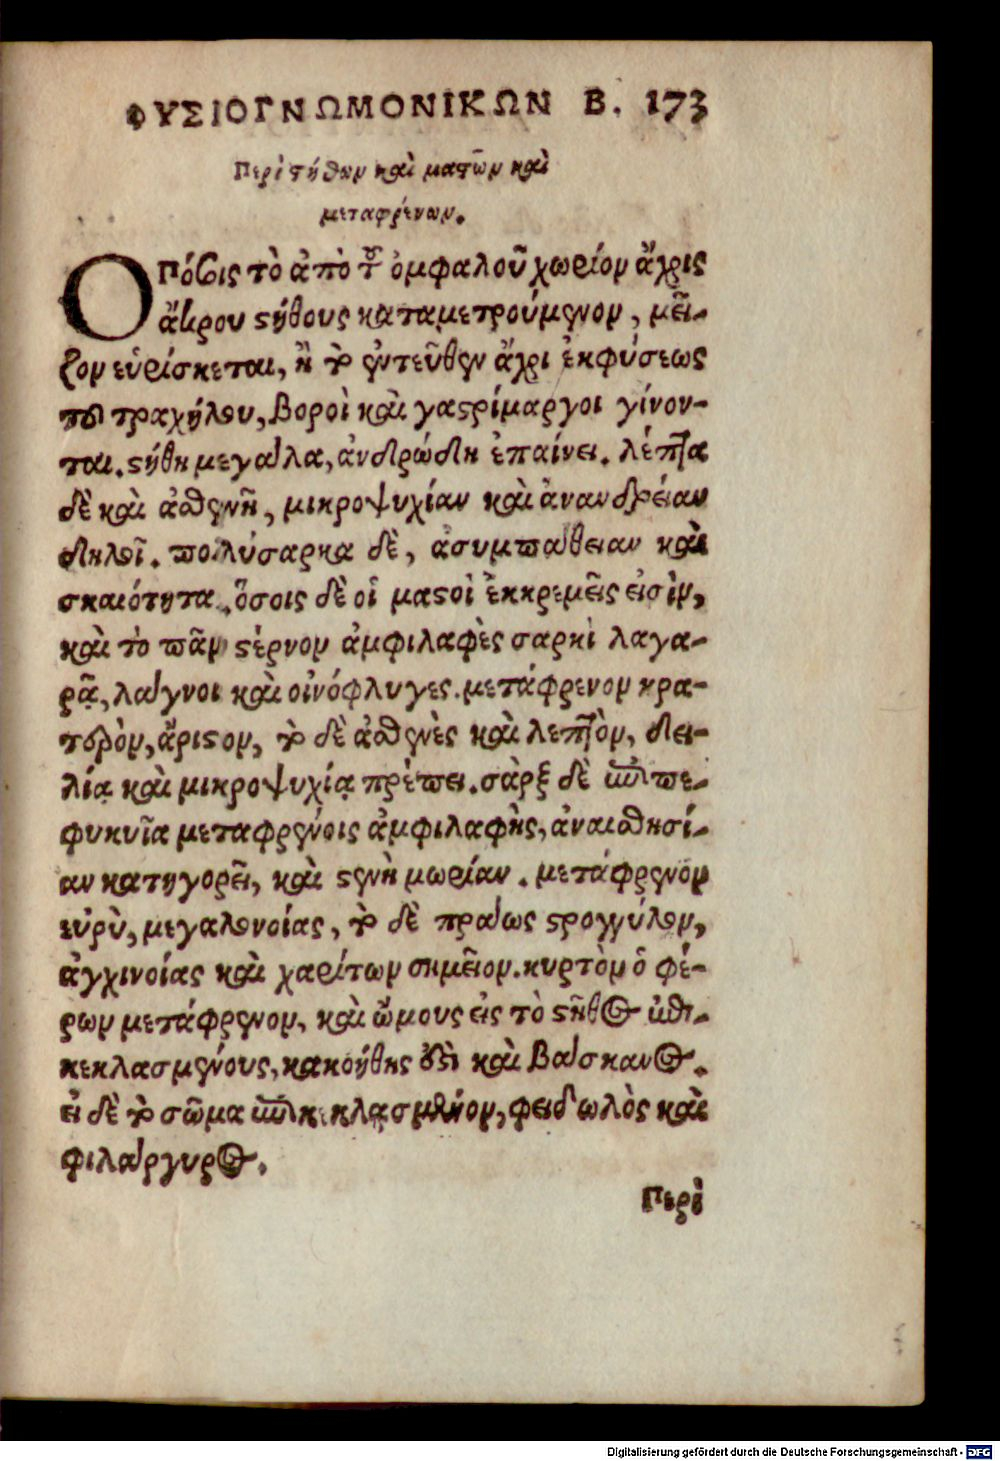 ΦΥΣΙΟΓΝΩΜΟΝΙΚΩΝ Β. 173
Περὶ στήθων καὶ μαστῶν καὶ
μεταφρένων.
Ὁπόσοις τὸ ἀπὸ τοῦ ὀμφαλοῦ χωρίον ἄχρις
ἄκρου στήθους καταμετρούμενον, μεῖ-
ζον εὑρίσκεται, ἢ τὸ ἐντεῦθεν ἄχρι ἐκφύσεως
τοῦ τραχήλου, βοροὶ καὶ γαστρίμαργοι γίνον-
ται. στήθη μεγάλα, ἀνδρώδη ἐπαίνει. λεπτὰ
δὲ καὶ ἀσθενῆ, μικροψυχίαν καὶ ἀνανδρείαν
δηλοῖ. πολύσαρκα δὲ, ἀσυμπάθειαν καὶ
σκαιότητα. ὅσοις δὲ οἱ μαστοὶ ἐκκρεμεῖς εἰσὶν,
καὶ τὸ πᾶν στέρνον ἀμφιλαφὲς σαρκὶ λαγα-
ρᾷ, λάγνοι καὶ οἰνόφλυγες. μετάφρενον κρα-
τερὸν, ἄριστον, τὸ δὲ ἀσθενὲς καὶ λεπτὸν, δει-
λίᾳ καὶ μικροψυχίᾳ πρέπει. σὰρξ δὲ ἐπιπε-
φυκυῖα μεταφρένοις ἀμφιλαφὴς, ἀναισθησί-
αν κατηγορεῖ, καὶ στενὴ μωρίαν. μετάφρενον
εὐρὺ, μεγαλονοίας, τὸ δὲ πράως στρογγύλον,
ἀγχινοίας καὶ χαρίτων σημεῖον. κυρτὸν ὁ φέ-
ρων μετάφρενον, καὶ ὤμους εἰς τὸ στῆθος ἐπι-
κεκλασμένους, κακοήθης ἐστὶ καὶ βάσκανος.
εἰ δὲ τὸ σῶμα ἐπικεκλασμένον, φειδωλὸς καὶ
φιλάργυρος.
Περὶ
Digitalisierung gefördert durch die Deutsche Forschungsgemeinschaft - DFG